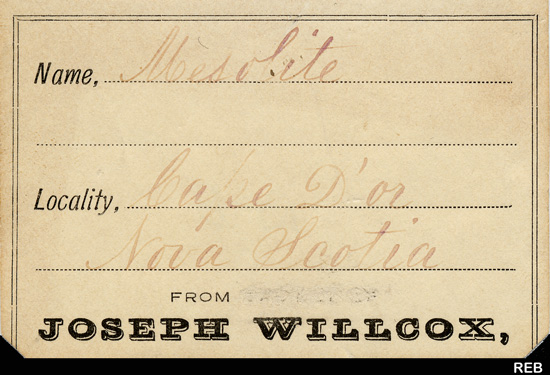 Name, Mesolite
Locality, Cape D'or
Nova Scotia
FROM
JOSEPH WILLCOX,
REB